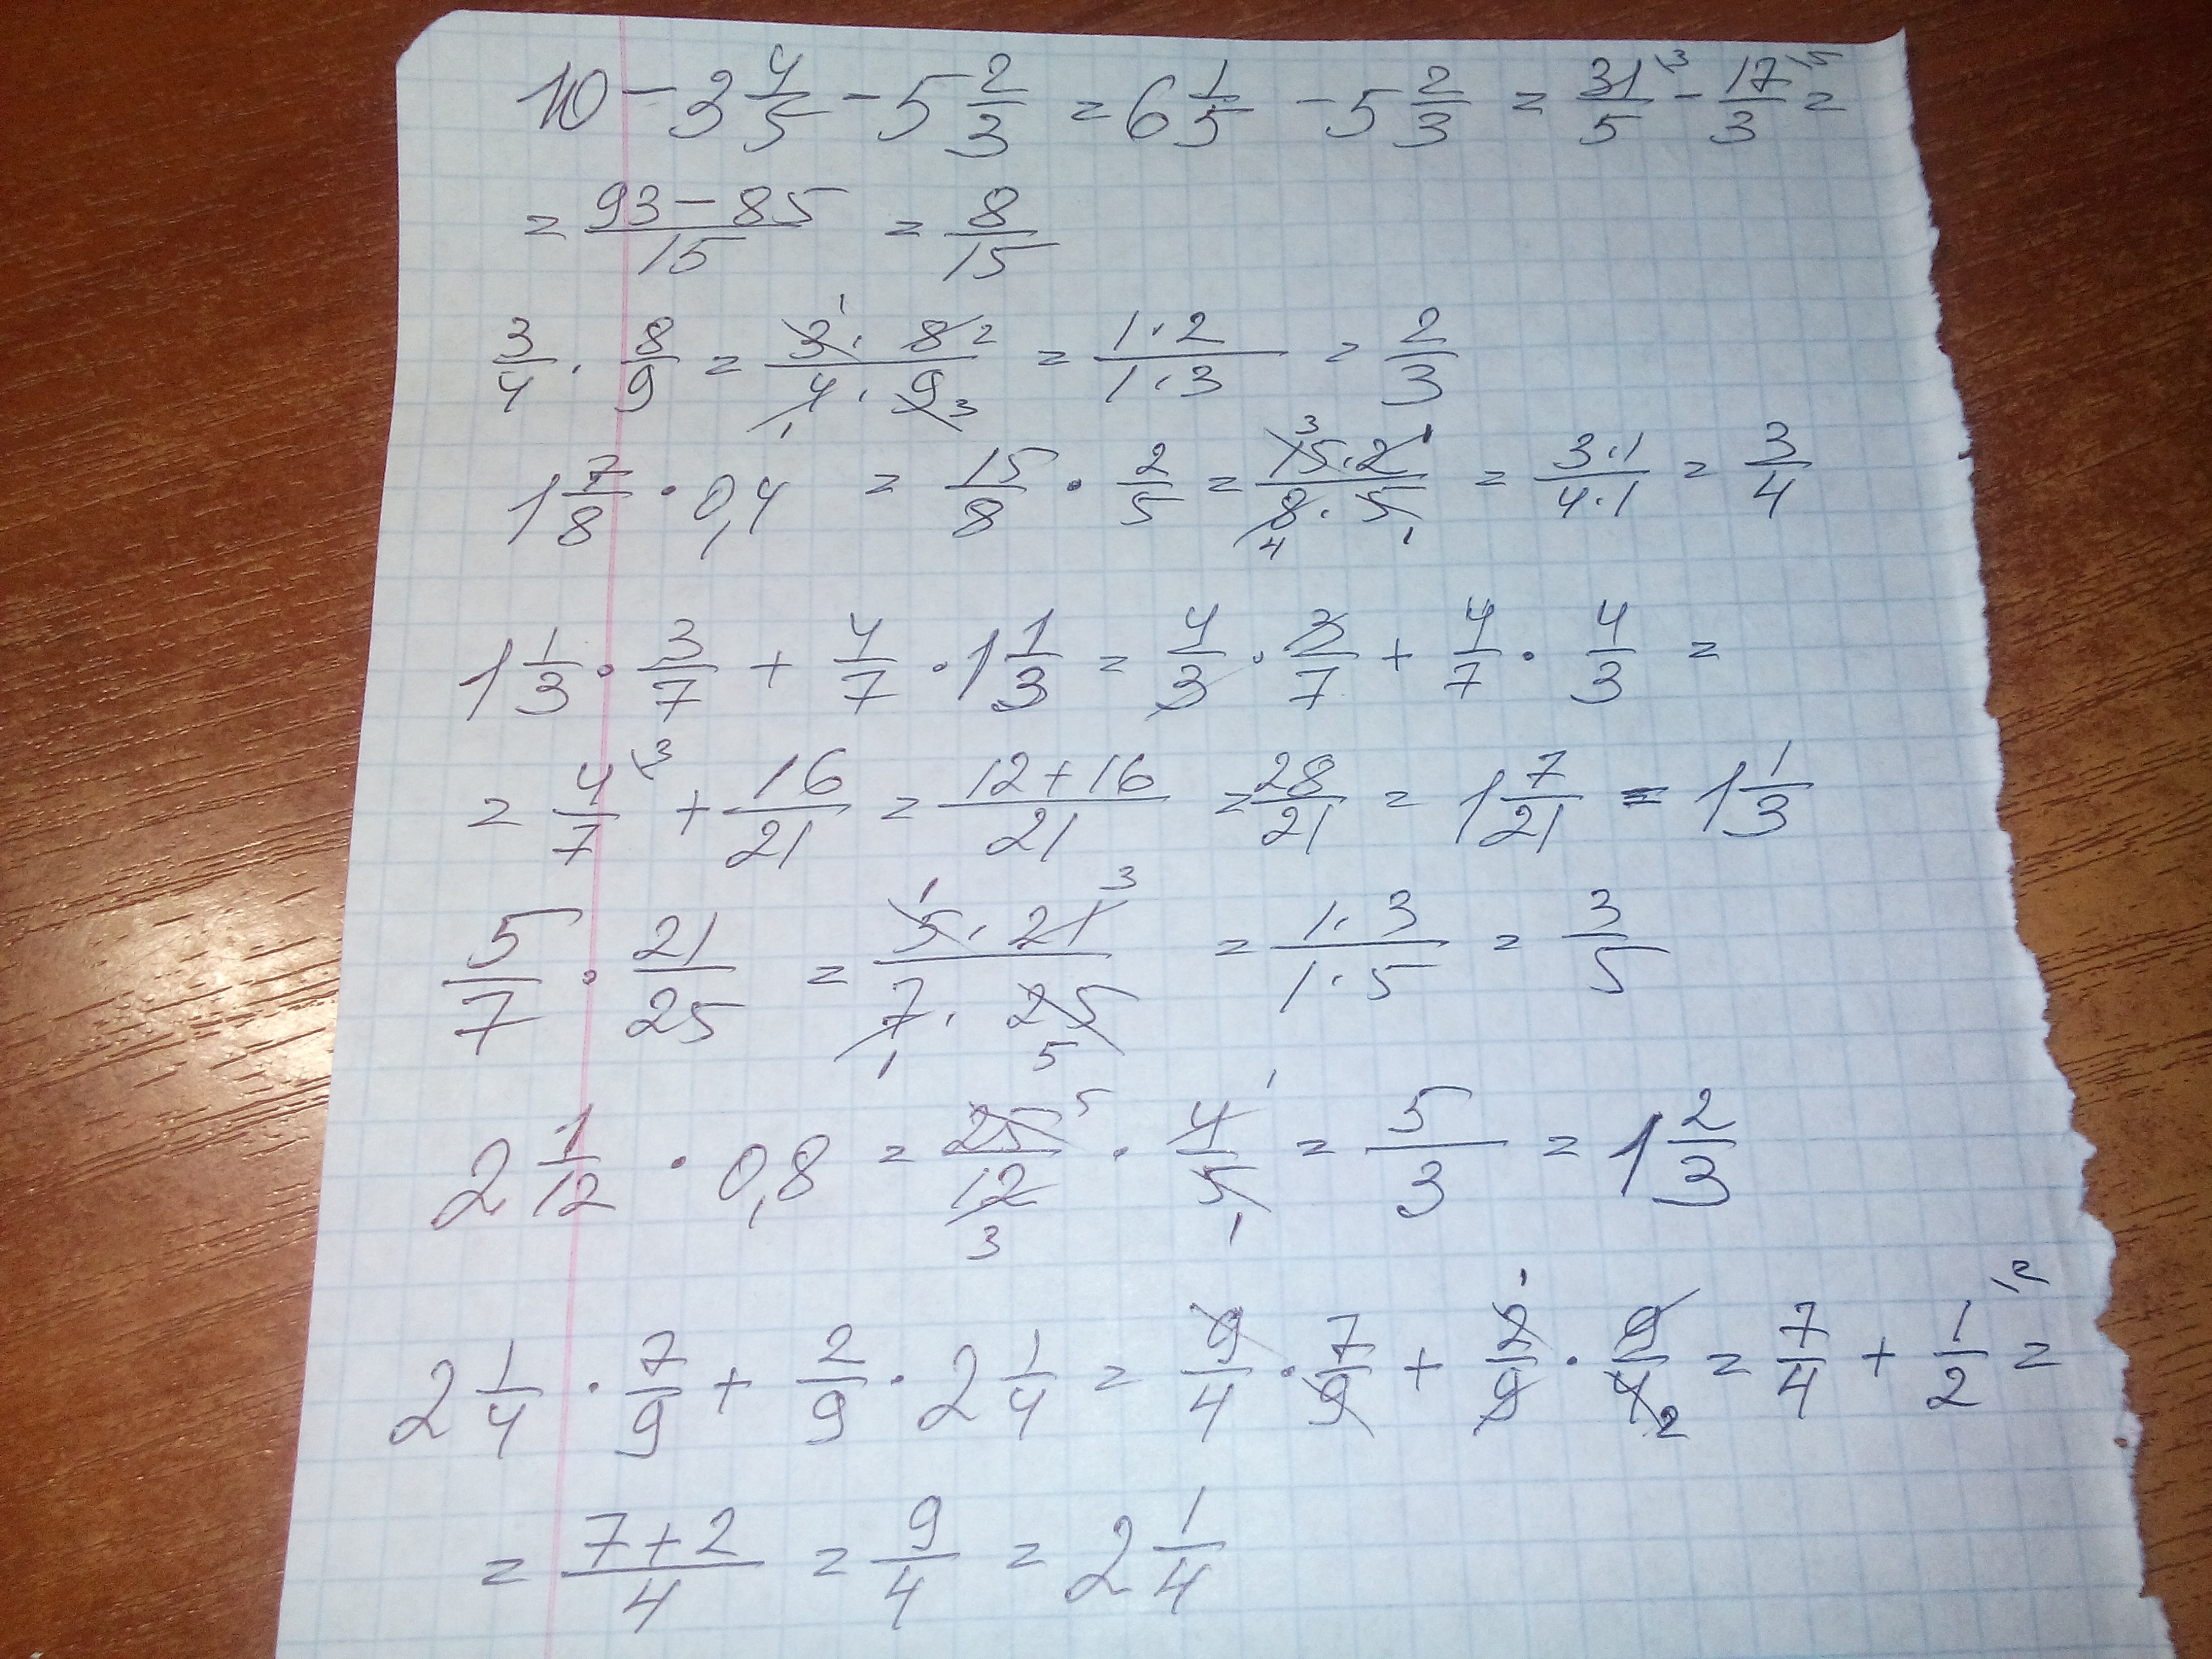 10 - 3 4/5 - 5 2/3 = 6 1/5 - 5 2/3 = 31/5 \3 - 17/3 \5 =
= (93 - 85)/15 = 8/15
3/4 · 8/9 = (3 1 · 8 2)/(4 1 · 9 3) = (1 · 2)/(1 · 3) = 2/3
1 7/8 · 0,4 = 15/8 · 2/5 = (15 3 · 2 1)/(8 4 · 5 1) = (3 · 1)/(4 · 1) = 3/4
1 1/3 · 3/7 + 4/7 · 1 1/3 = 4/3 · 3/7 + 4/7 · 4/3 =
= 4/7 \3 + 16/21 = (12 + 16)/21 = 28/21 = 1 7/21 = 1 1/3
5/7 · 21/25 = (5 1 · 21 3)/(7 1 · 25 5) = (1 · 3)/(1 · 5) = 3/5
2 1/12 · 0,8 = 25 5/12 3 · 4 1/5 1 = 5/3 = 1 2/3
2 1/4 · 7/9 + 2/9 · 2 1/4 = 9/4 · 7/9 + 2 1/9 · 9/4 2 = 7/4 + 1/2 \2 =
= (7 + 2)/4 = 9/4 = 2 1/4